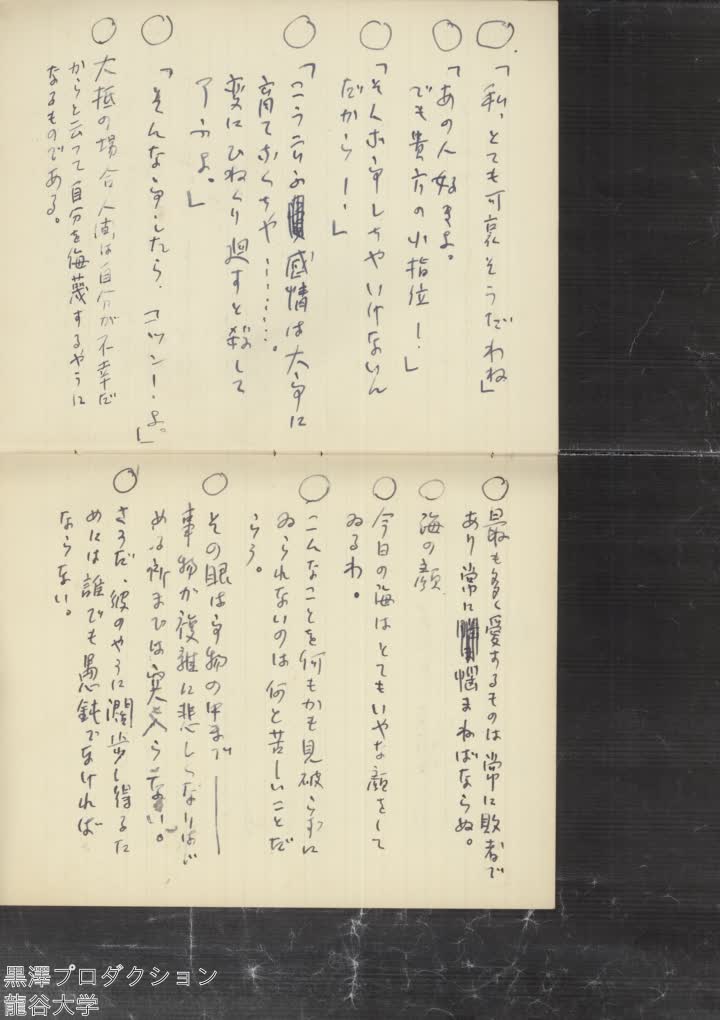 ○「私、とても可哀そうだわね」
○「あの人好きよ。
でも貴方の小指位ー.」
○「そんな事しちやいけないん
だからー.」
○「こう云ふ感情は大事に
育てなくちや………。
変にひねくり廻すと殺して
了ふよ。」
○「そんな事したら、コツンー.よ。」
○大抵の場合人間は自分が不幸だ
からと云つて自分を侮蔑するやうに
なるものである。
○最も多く愛するものは常に敗者で
あり常に悩まねばならぬ。
○海の顔
○今日の海はとてもいやな顔をして
ゐるわ。
○こんなことを何もかも見破らずに
ゐられないのは何と苦しいことだ
らう。
○その眼は事物の中まで──
事物が複雑に悲しくなりはじ
める所までは突入らない。
○さうだ、彼のやうに濶歩し得るた
めには誰でも愚鈍でなければ
ならない。
黒澤プロダクション
龍谷大学